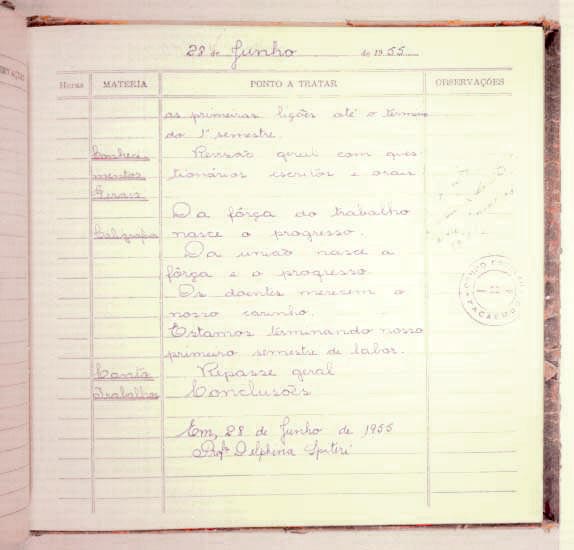 28 de Junho de 1955
Horas MATERIA PONTO A TRATAR OBSERVAÇÕES
as primeiras lições até o término
do 1º semestre.
Conheci- Revisão geral com ques-
mentos tionários escritos e orais
Gerais
Da fôrça do trabalho
Caligrafia nasce o progresso.
Da união nasce a
fôrça e o progresso
Os doentes merecem o
nosso carinho.
Estamos terminando nosso
primeiro semestre de labor.
Canto Repasse geral
Trabalhos Conclusões
Em, 28 de Junho de 1955
Profª Delphina Spiteri